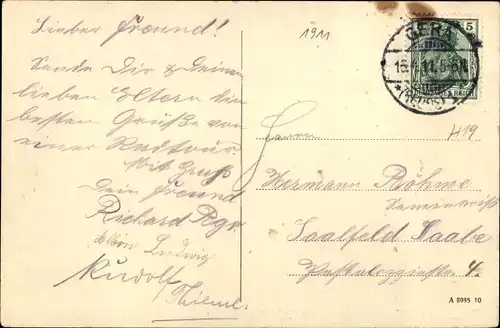 Lieber Freund!
Sende Dir & Deinen
lieben Eltern die
besten Grüße von
einer Radtour
Mit Gruß
Dein Freund
Richard
Albin Ludwig
Rudolf Thieme
1911
GERA
16. 4. 11. 5-6
*(REUSS)
5
419
Herrn
Hermann Böhme
Saalfeld Saale
Pestalozzistr 4.
A 8995 10